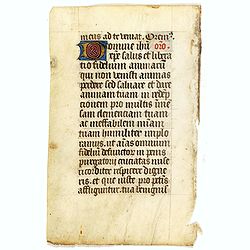 meus ad te veniat. Orem⁹.
Domine ihū oro.
xp̄e salus et libera
tio fidelium animarū
qui non venisti animas
perdere sed salvare et dare
animam tuam in redēp
cionem pro multis imme
sam clementiam tuam
ac ineffabilem miam
tuam humiliter implo
ramus. ut aīas omnium
fidelium defunctor in penis
purgatorii cruciatas mise
ricorditer respicere digne
ris. et que iuste pro petīs
affliguntur. tua benignis